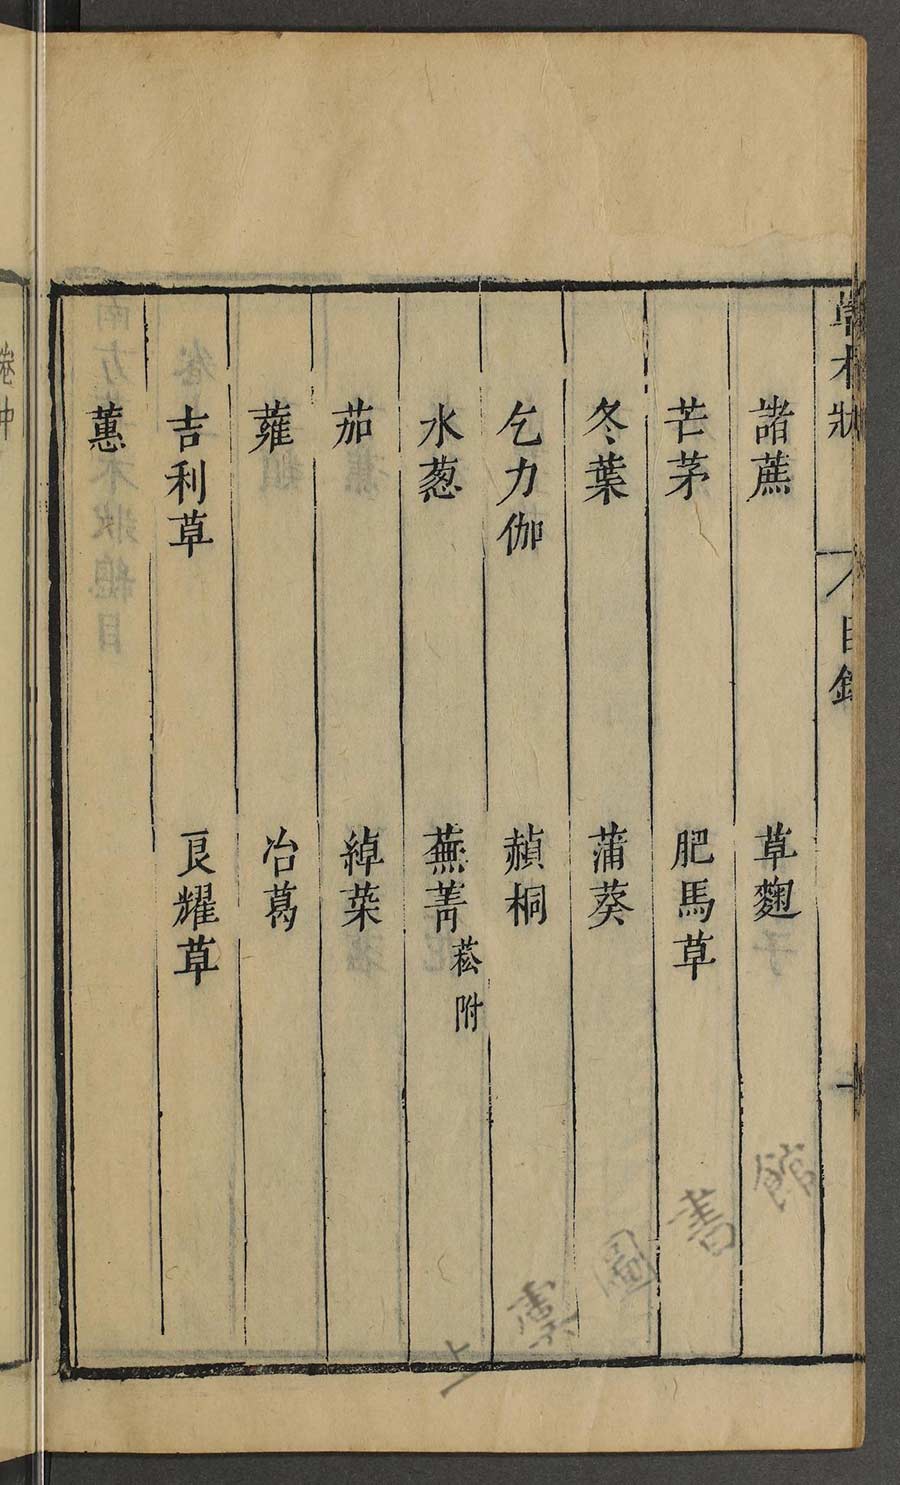 草木狀
目錄
諸蔗 草麴
芒茅 肥馬草
冬葉 蒲葵
乞力伽 赬桐
水葱 蕪菁 菘附
茄 綽菜
蕹 冶葛
吉利草 良耀草
蕙
卷中
上虞圖書館